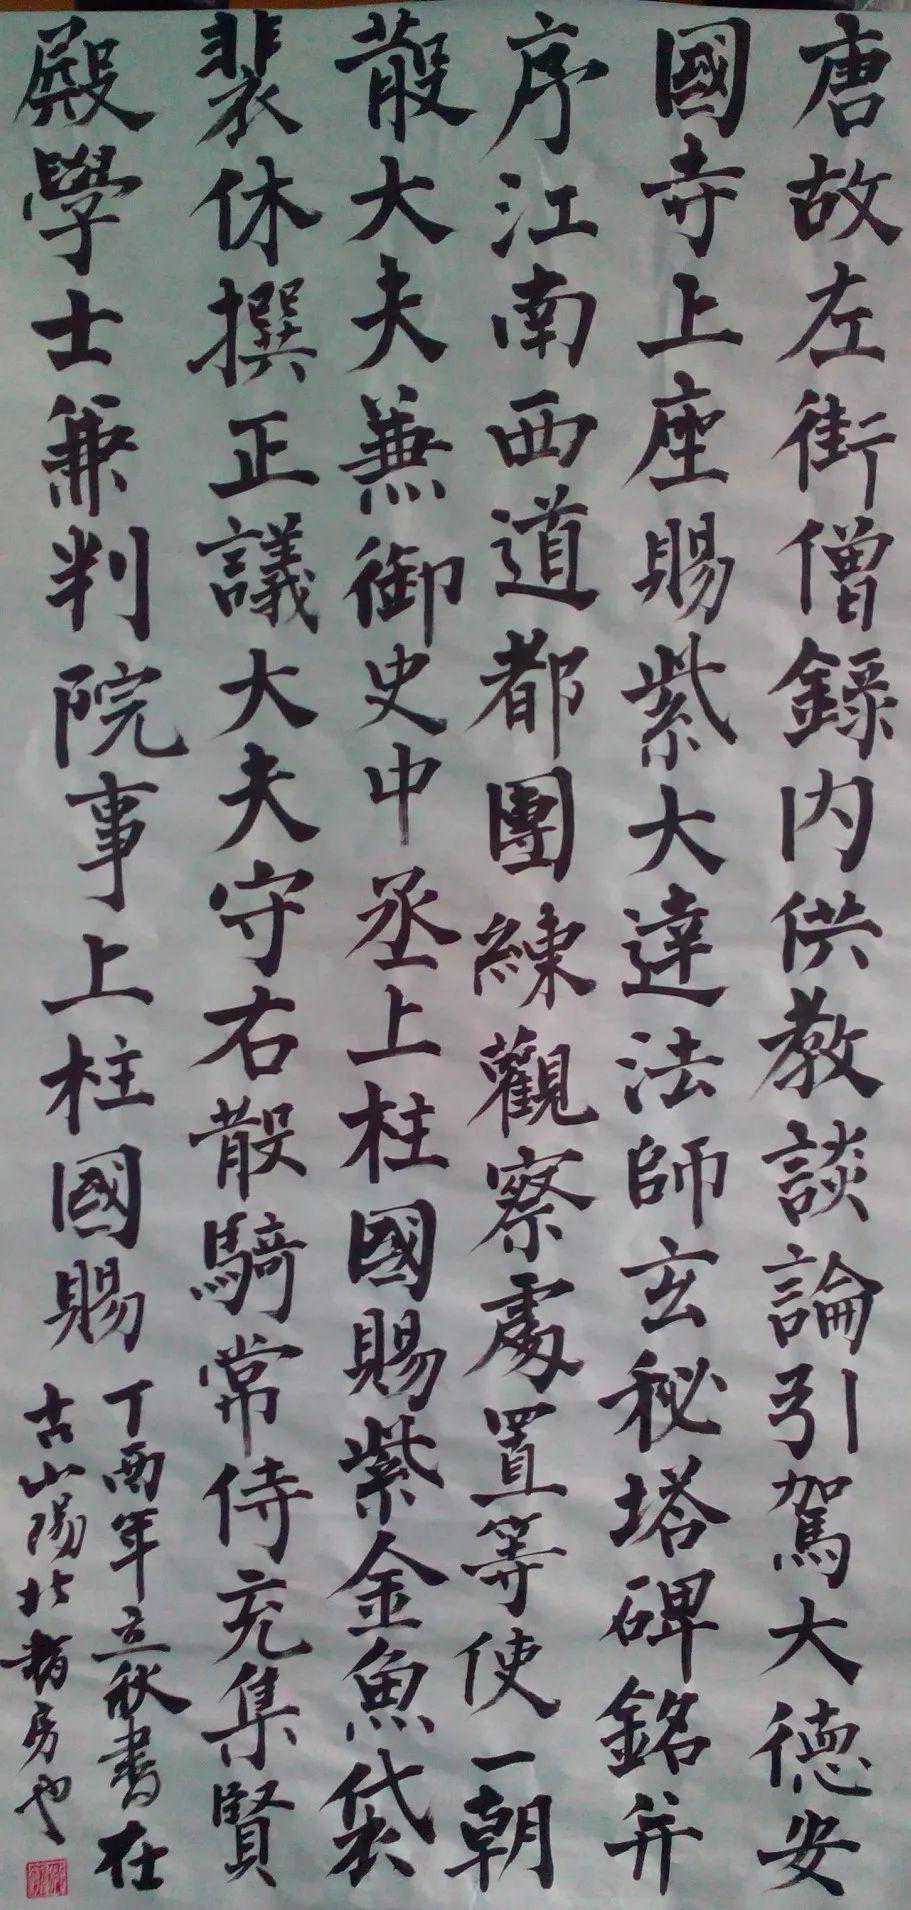 唐故左街僧録内供教談論引駕大德安
國寺上座賜紫大達法師玄秘塔碑銘并
序江南西道都團練觀察處置等使一朝
散大夫兼御史中丞上柱國賜紫金魚袋
裴休撰正議大夫守右散騎常侍充集賢
殿學士兼判院事上柱國賜
丁酉年立秋書在
古山陽北書房也